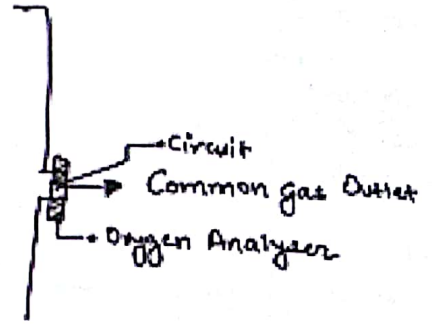 Circuit
Common gas Outlet
Oxygen Analyser